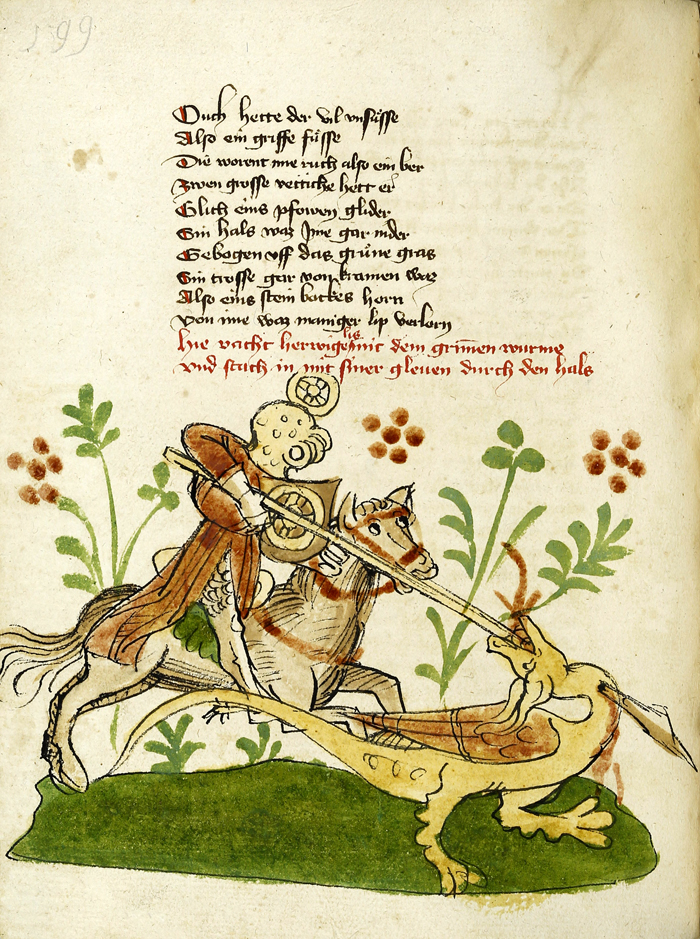 199
Ouch hette der vil unsüsse
Also ein griffe füsse
Die worent ime ruch also ein ber
Zwen grosse vettiche hett er
Glich eins pfowen glider
Sin hals waz Ime gar nider
Gebogen uff daz grüne gras
Sin trosse gar von kramen waz
Also eins stein bockes horn
Von ime waz maniger lip verlorn
Hie vacht herwigelis mit dem grimen wurme
vnd stach in mit siner gleuen durch den hals